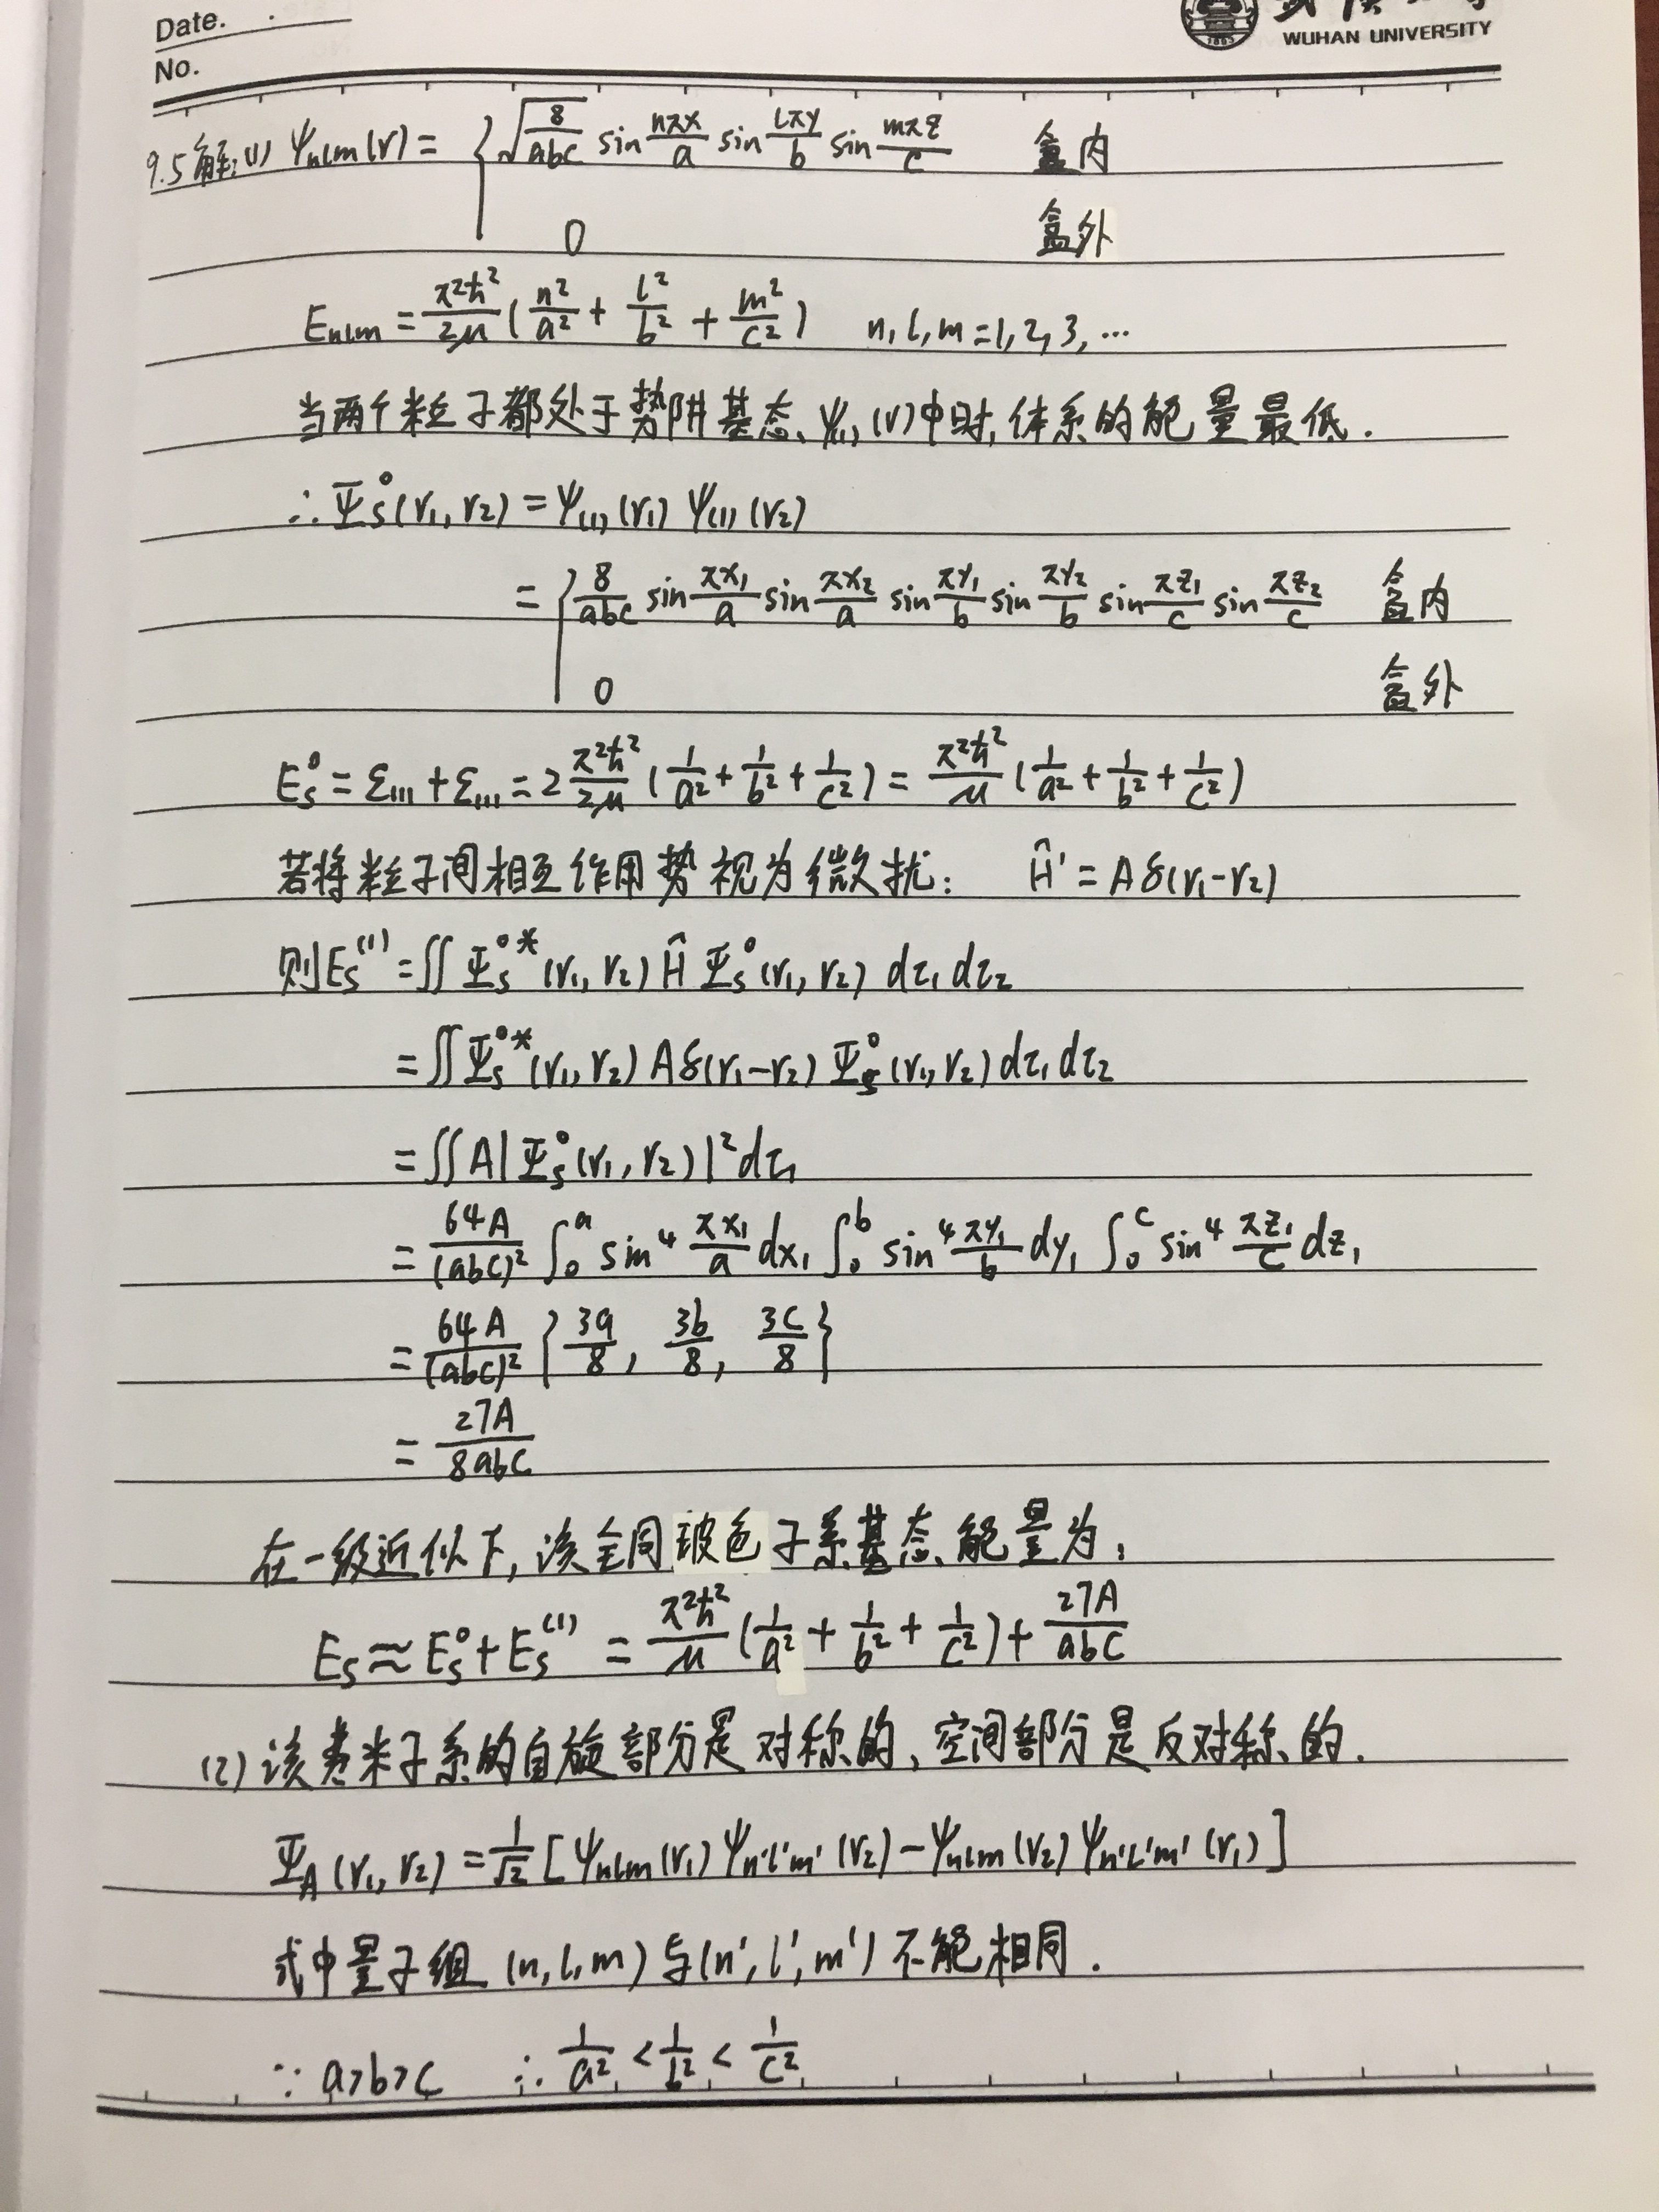 Date. .
WUHAN UNIVERSITY
No.
9.5 解:(1) ψnlm(r) = { √(8/abc) sin nπx/a sin lπy/b sin mπz/c 盒内
0 盒外
Enlm = π²ħ²/2μ (n²/a² + l²/b² + m²/c²) n, l, m = 1, 2, 3, ⋯
当两个粒子都处于势阱基态ψ111(r)中时,体系的能量最低.
∴ Ψs⁰(r1, r2) = ψ111(r1) ψ111(r2)
= { 8/abc sin πx1/a sin πx2/a sin πy1/b sin πy2/b sin πz1/c sin πz2/c 盒内
0 盒外
Es⁰ = ε111 + ε111 = 2 π²ħ²/2μ (1/a² + 1/b² + 1/c²) = π²ħ²/μ (1/a² + 1/b² + 1/c²)
若将粒子间相互作用势视为微扰: Ĥ' = Aδ(r1-r2)
则Es⁽¹⁾ = ∬ Ψs⁰*(r1, r2) Ĥ Ψs⁰(r1, r2) dτ1 dτ2
= ∬ Ψs⁰*(r1, r2) Aδ(r1-r2) Ψs⁰(r1, r2) dτ1 dτ2
= ∬ A|Ψs⁰(r1, r2)|² dτ1
= 64A/(abc)² ∫₀ᵃ sin⁴ πx1/a dx1 ∫₀ᵇ sin⁴ πy1/b dy1 ∫₀ᶜ sin⁴ πz1/c dz1
= 64A/(abc)² { 3a/8, 3b/8, 3c/8 }
= 27A/8abc
在一级近似下,该全同玻色子系基态能量为:
Es ≈ Es⁰ + Es⁽¹⁾ = π²ħ²/μ (1/a² + 1/b² + 1/c²) + 27A/abc
(2) 该费米子系的自旋部分是对称的、空间部分是反对称的.
ΨA(r1, r2) = 1/√2 [ψnlm(r1) ψn'l'm'(r2) - ψnlm(r2) ψn'l'm'(r1)]
式中量子组 (n, l, m) 与(n', l', m') 不能相同.
∵ a>b>c ∴ 1/a² < 1/b² < 1/c²